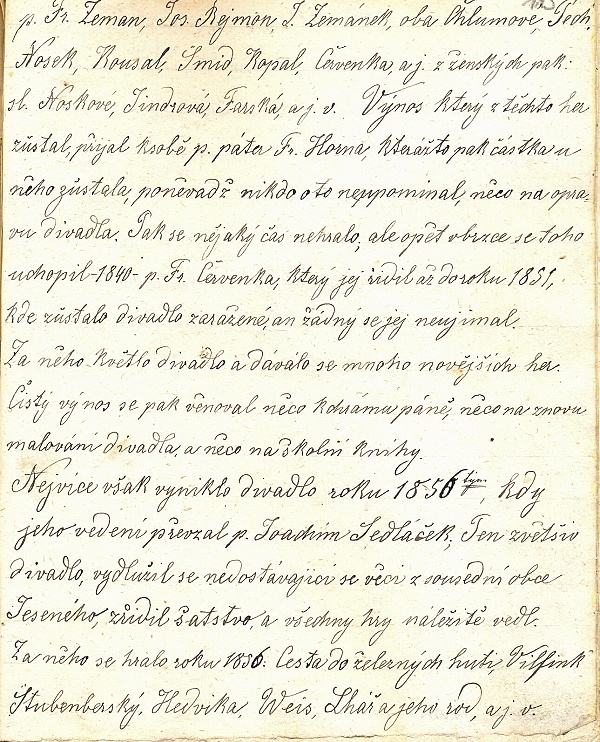 p. Fr. Zeman, Jos. Rejmon, J. Zemánek, oba Chlumové, Těch,
Nosek, Kousal, Šmíd, Kopal, Červenka, a j. z ženských pak:
sl. Noskové, Jindrová, Farská, a j. v. Výnos který z těchto her
zůstal, přijal ksobě p. páter Fr. Horna, kterážto pak částka u
něho zůstala, poněvadž nikdo oto neupomínal, něco na opra-
vu divadla. Pak se nějaký čas nehrálo, ale opět vbrzce se toho
uchopil -1840- p. Fr. Červenka, který jej řídil až do roku 1851,
kde zůstalo divadlo zaražené, an žádný se jej neujímal.
Za něho květlo divadlo a dávalo se mnoho novějších her.
Čistý výnos se pak věnoval něco kchrámu páně, něco na znovu
malování divadla, a něco na školní knihy.
Nejvíce však vyniklo divadlo roku 1856, kdy
jeho vedení převzal p. Joachim Sedláček, Ten zvětšio
divadlo, vydlužil se nedostávající se věci z sousední obce
Jeseného, zřídil šatstvo, a všechny hry náležitě vedl.
Za něho se hrálo roku 1856. Cesta do železných hutí, Vilfink
Štubenberský, Hedvika, Weis, Lhář a jeho rod, a j. v.